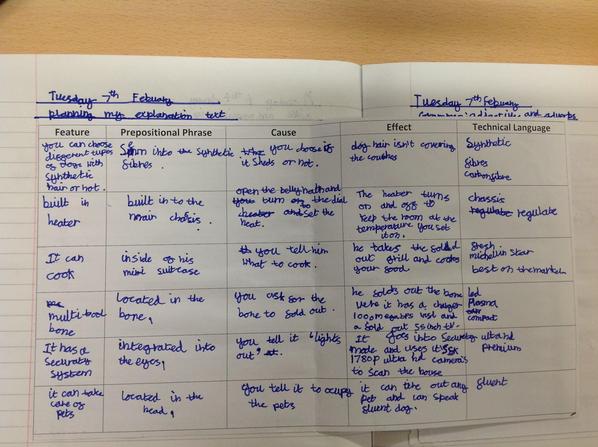 Tuesday 7th Febuary
planning my explanation text
Tuesday 7th Febuary
adjectives and adverbs
Feature Prepositional Phrase Cause Effect Technical Language
you can choose
different types
of dogs with
Synthetic
hair or not.
into the Synthetic
fibres.
you choose if
it sheds or not.
dog hair isn't covering
the couches
Synthetic
fibres
carbonfibre
built in
heater
built in to the
main chasis.
open the belly hatch and
turn on the dial
and set the
heat.
The heater turns
on and off to
keep the room at the
temperature you set
it on.
chassis
regulate regulate
It can
cook
inside of his
mini suitcase
you tell him
what to cook.
he takes the fold
out grill and cooks
your food
fresh
michelin star
best on the market
multi tool
bone
Located in the
bone,
you ask for the
bone to fold out.
he folds out the bone
it has a charger
100 megabits and
a fold out 55 inch tv.
led
Plasma
compact
It has a
security
system
integrated into
the eyes,
you tell it "lights
out"
It goes into Security
mode and uses it's 5k
1780p ultra hd camera's
to scan the house
ultra hd
Premium
it can take
care of
pets
Located in the
head,
you tell it to ocupy
the pets
it can take out any
pet and can speak
fluent dog.
fluent